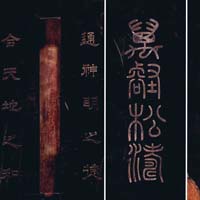 通神明之德
合天地之和
萬壑松濤